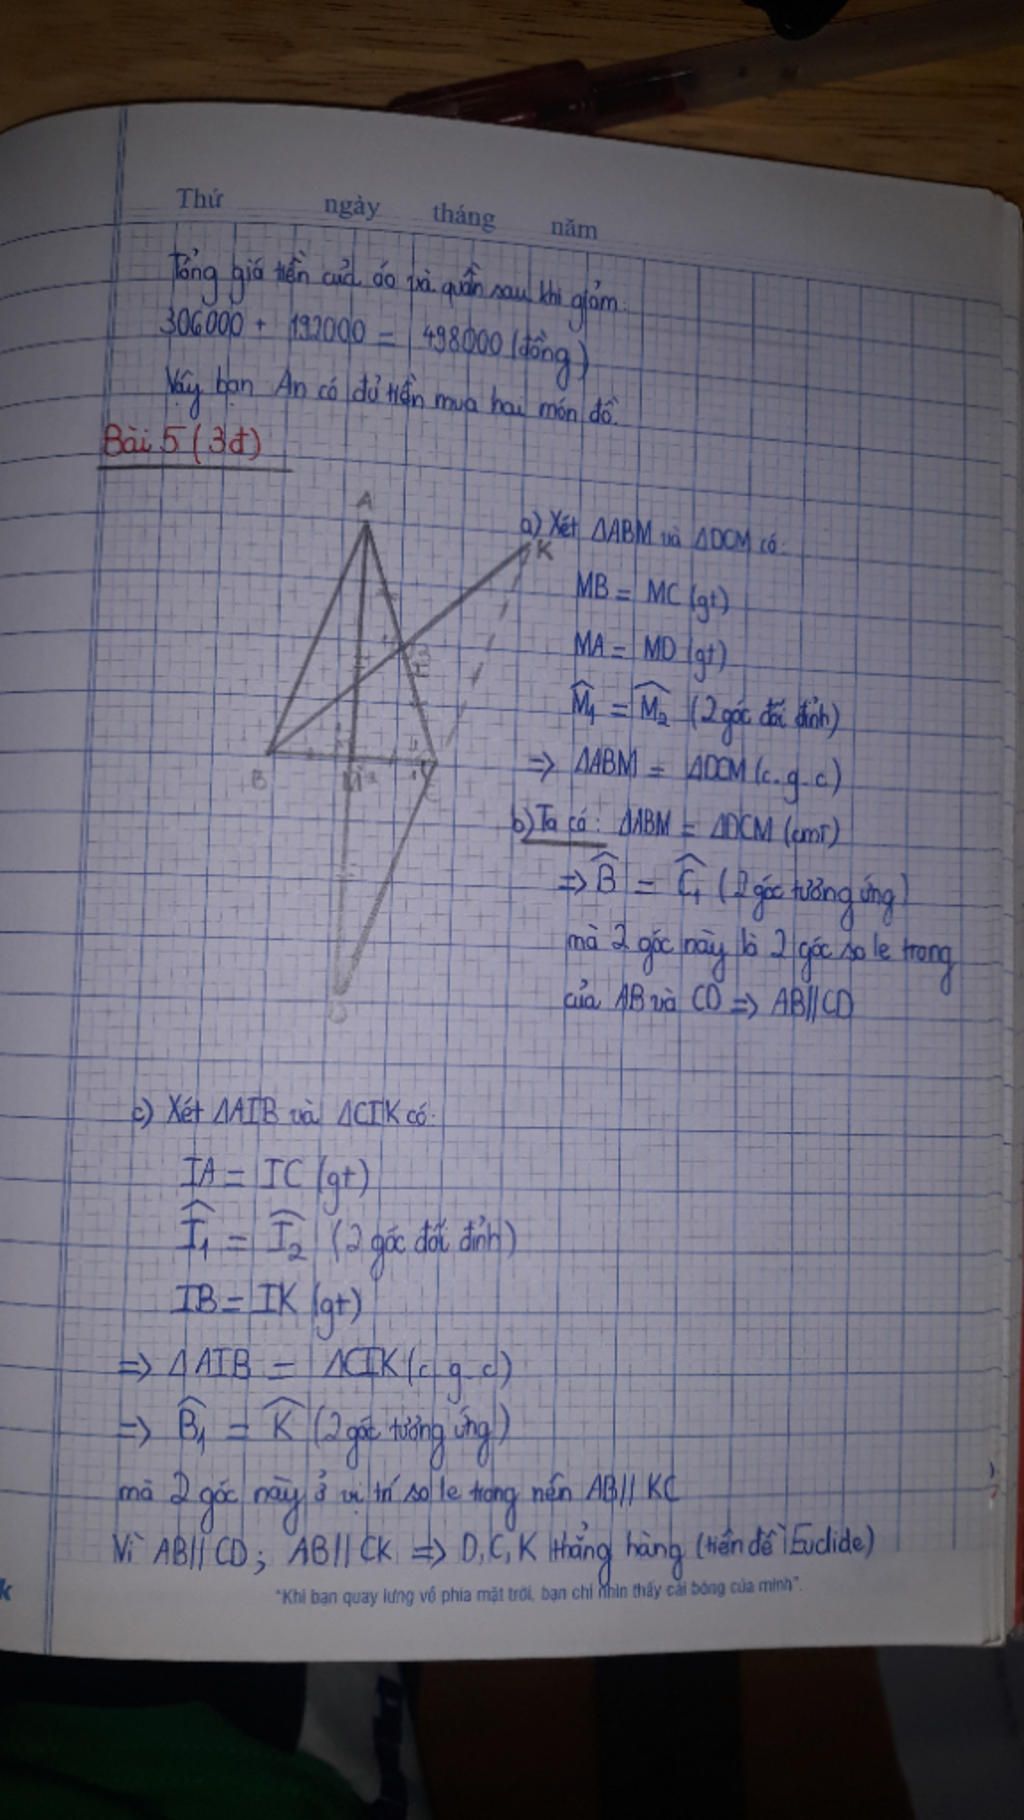 Thứ ngày tháng năm
Tổng giá tiền của áo và quần sau khi giảm.
306000 + 192000 = 498000 (đồng)
Vậy bạn An có đủ tiền mua hai món đồ.
Bài 5 (3đ)
A
K
B
M
C
D
a) Xét ΔABM và ΔDCM có:
MB = MC (gt)
MA = MD (gt)
M̂₁ = M̂₂ (2 góc đối đỉnh)
=> ΔABM = ΔDCM (c.g.c)
b) Ta có: ΔABM = ΔDCM (cmt)
=> B̂ = Ĉ₁ (2 góc tương ứng)
mà 2 góc này là 2 góc so le trong
của AB và CD => AB//CD
c) Xét ΔAIB và ΔCIK có:
IA = IC (gt)
Î₁ = Î₂ (2 góc đối đỉnh)
IB = IK (gt)
=> ΔAIB = ΔCIK (c.g.c)
=> B̂₁ = K̂ (2 góc tương ứng)
mà 2 góc này ở vị trí so le trong nên AB// KC
Vì AB//CD; AB//CK => D,C,K thẳng hàng (tiên đề Euclide)
"Khi bạn quay lưng về phía mặt trời, bạn chỉ nhìn thấy cái bóng của mình".
k